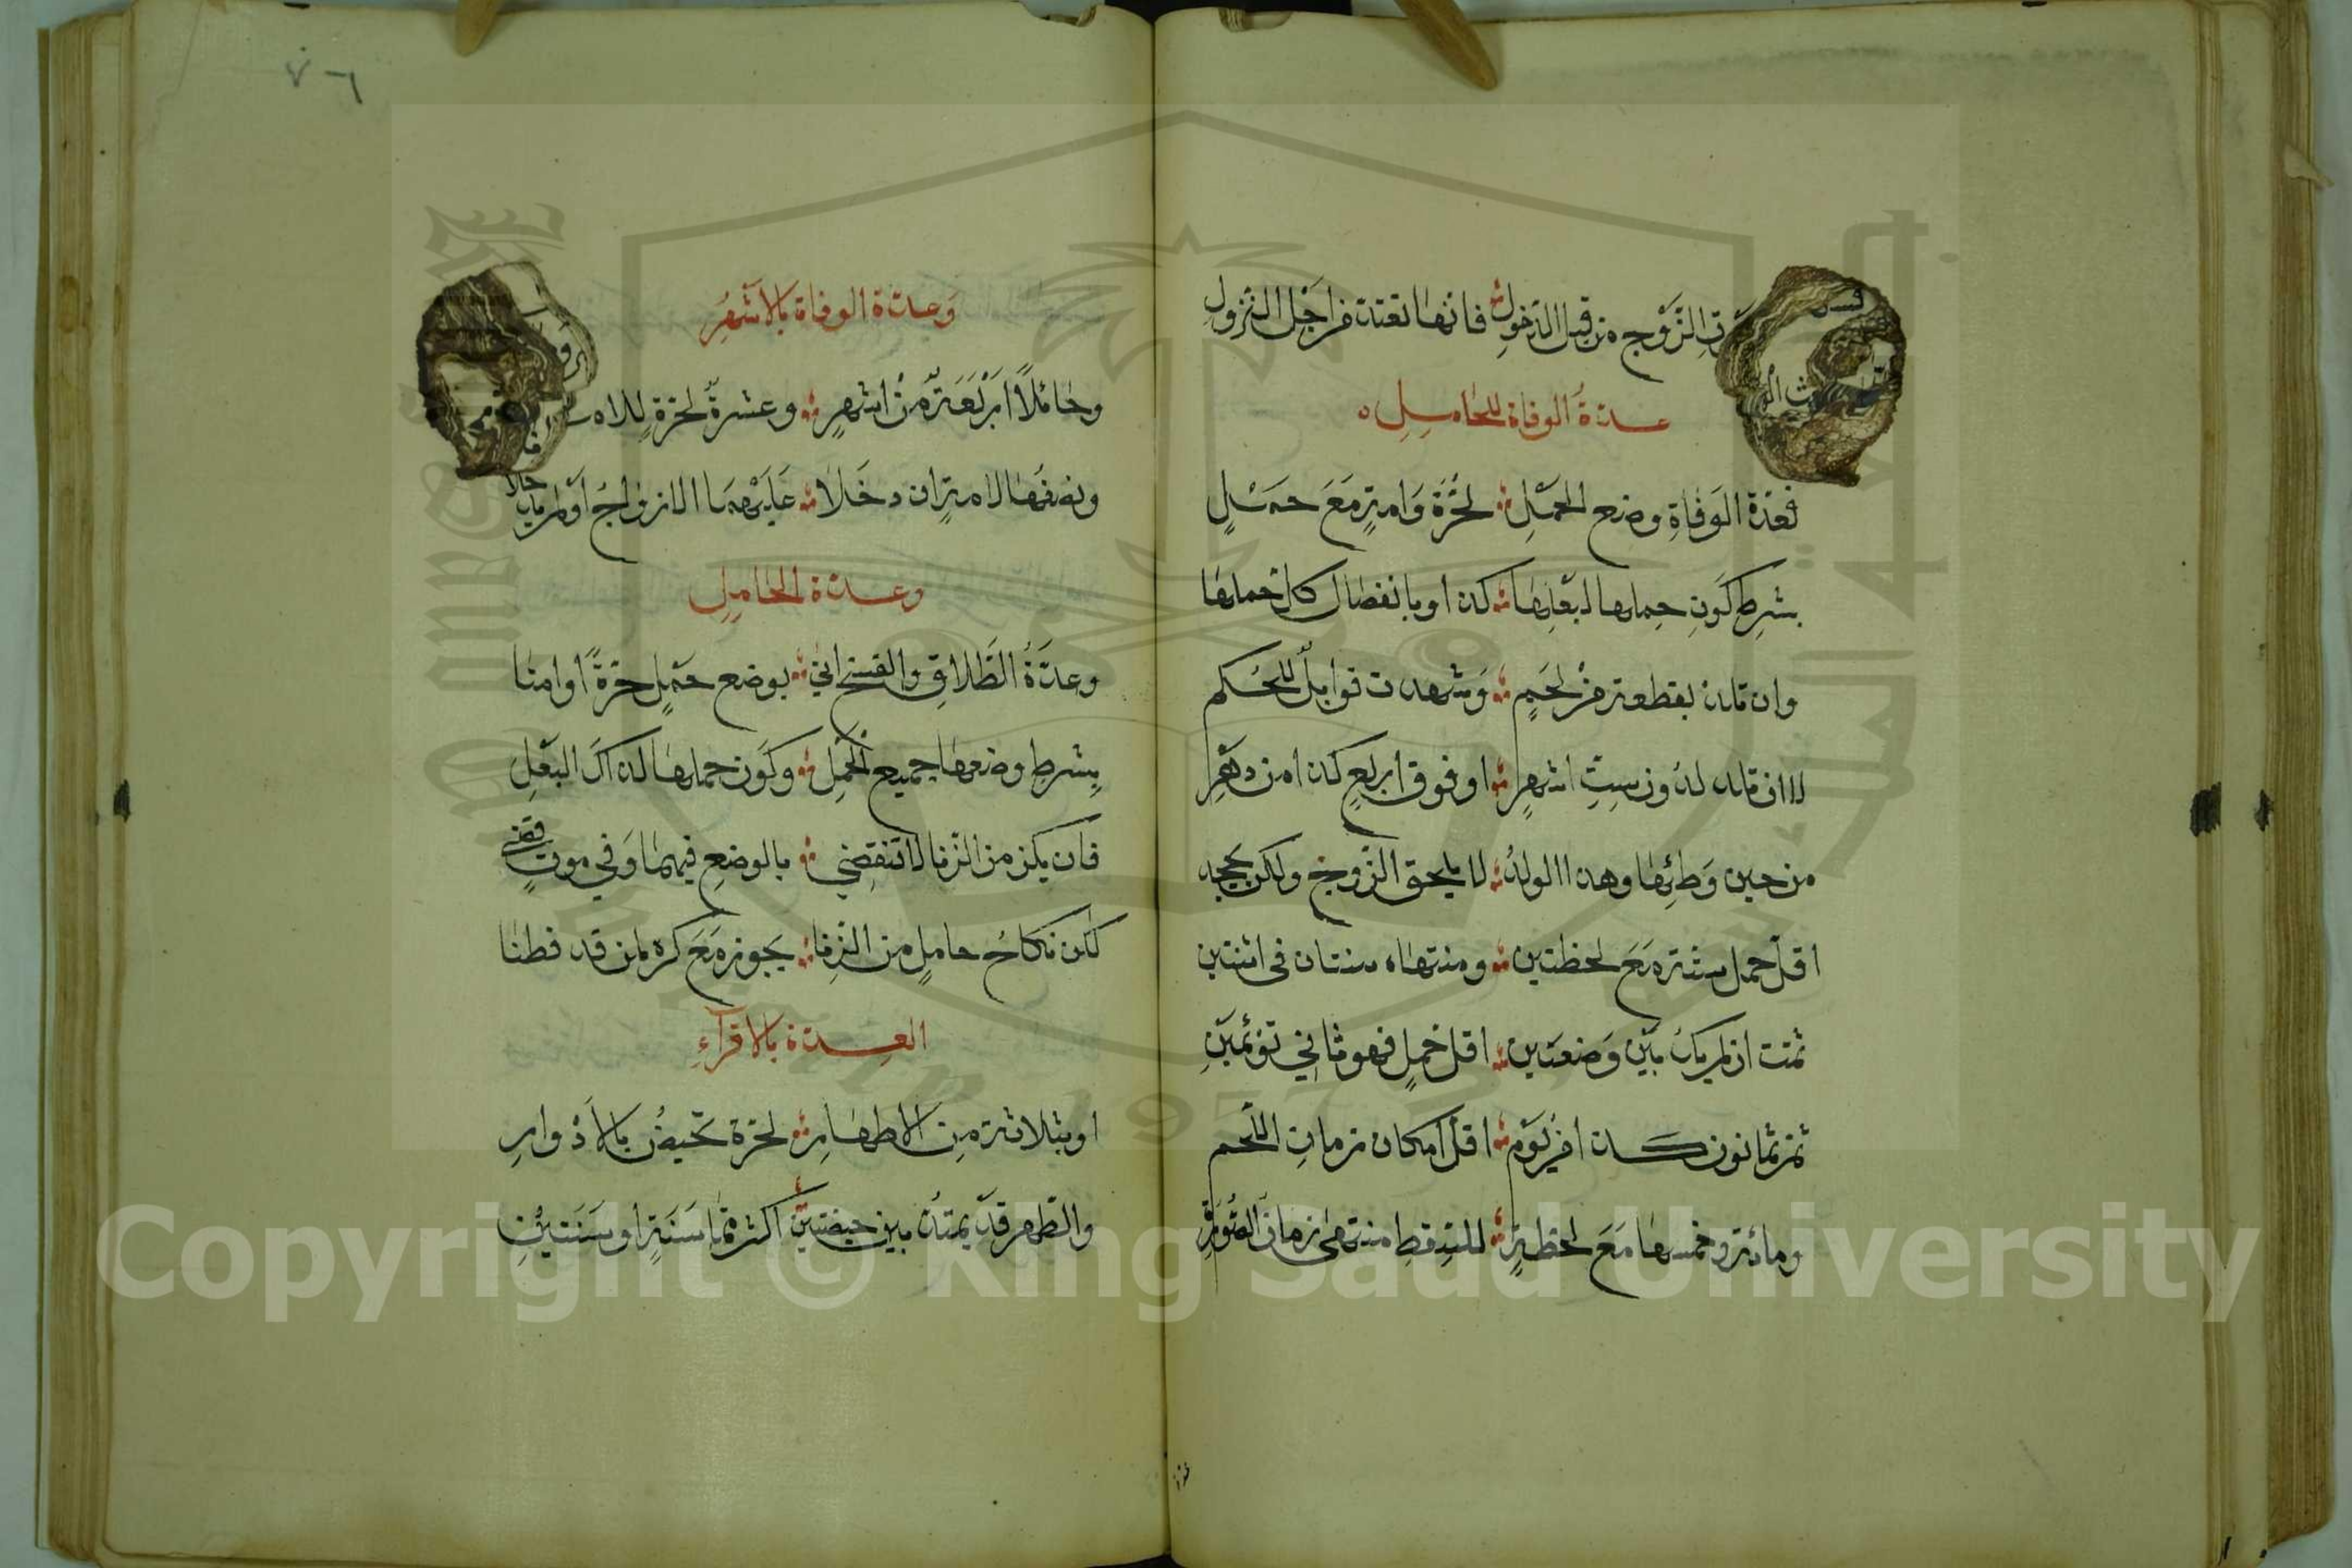 الزَّوْج من قبل الدخولِ فانها تعتد من اجل النزولِ
عدةُ الوفاة للحاملِ
فعدّة الوَفاةِ وضع الحمْلِ لحُرّة وَامةٍ مَعَ حمْلٍ
بشرط كَونِ حملها لبَعْلِها كذا وبانفصال كل حملها
وان تلد بقطعة من لحَمٍ وَشهدت قوابلٌ للحُكم
لا ان تلد لدون سِتِّ اشهرٍ او فوق اربع كذا من دهْرِ
من حين وَطئِها وهذا الولدُ لا يلحق الزّوج ولكن يجحد
اقلّ حمل ستة مَعَ لحظتين ومنتهاه سنتان في اثنتين
تمت ان لم يكُ بيْن وَضعَتين اقل حملٍ فهو ثاني توْئمَيْنِ
ثم ثمانون كذا فرْيَوْم اقلّ امكان زمانِ اللّحم
ومائة وخمسها مَعَ لحظةٍ للسّقط منتهى زمان الصُّورَةِ
٧٦
وَعدّة الوفاة بالاشْهُرِ
وحائلاً ارْبَعَةٌ منْ اشهرٍ وعشرةٌ لحرّةٍ
ونصفُها لامةٍ ان دخَلا عَليْهما الازواجُ اوْ لم يك
وعدّة الحاملِ
وعدَّةُ الطَّلاقِ والفسخ اتيٰ بوضع حَمْلٍ حرّةً او امتا
بِشرطِ وضعها جميع الحَمْلِ وكَون حملها لذاك البَعْلِ
فان يكن من الزنا لا تنقضي بالوضعِ فيهما وَفي موتٍ قضي
لكن نكاحُ حاملٍ من الزِنا يجوز مَعَ كره لمن قد فطنا
العِدّة بالاقرآءِ
او بثلاثة مِن الاطهارِ لحرّة تحيضُ بالاَدْوارِ
والطّهر قدْ يمتدّ بين حيضتين اكثر مما سَنَةٍ او سَنَتيْنِ
Copyright © King Saud University
1957